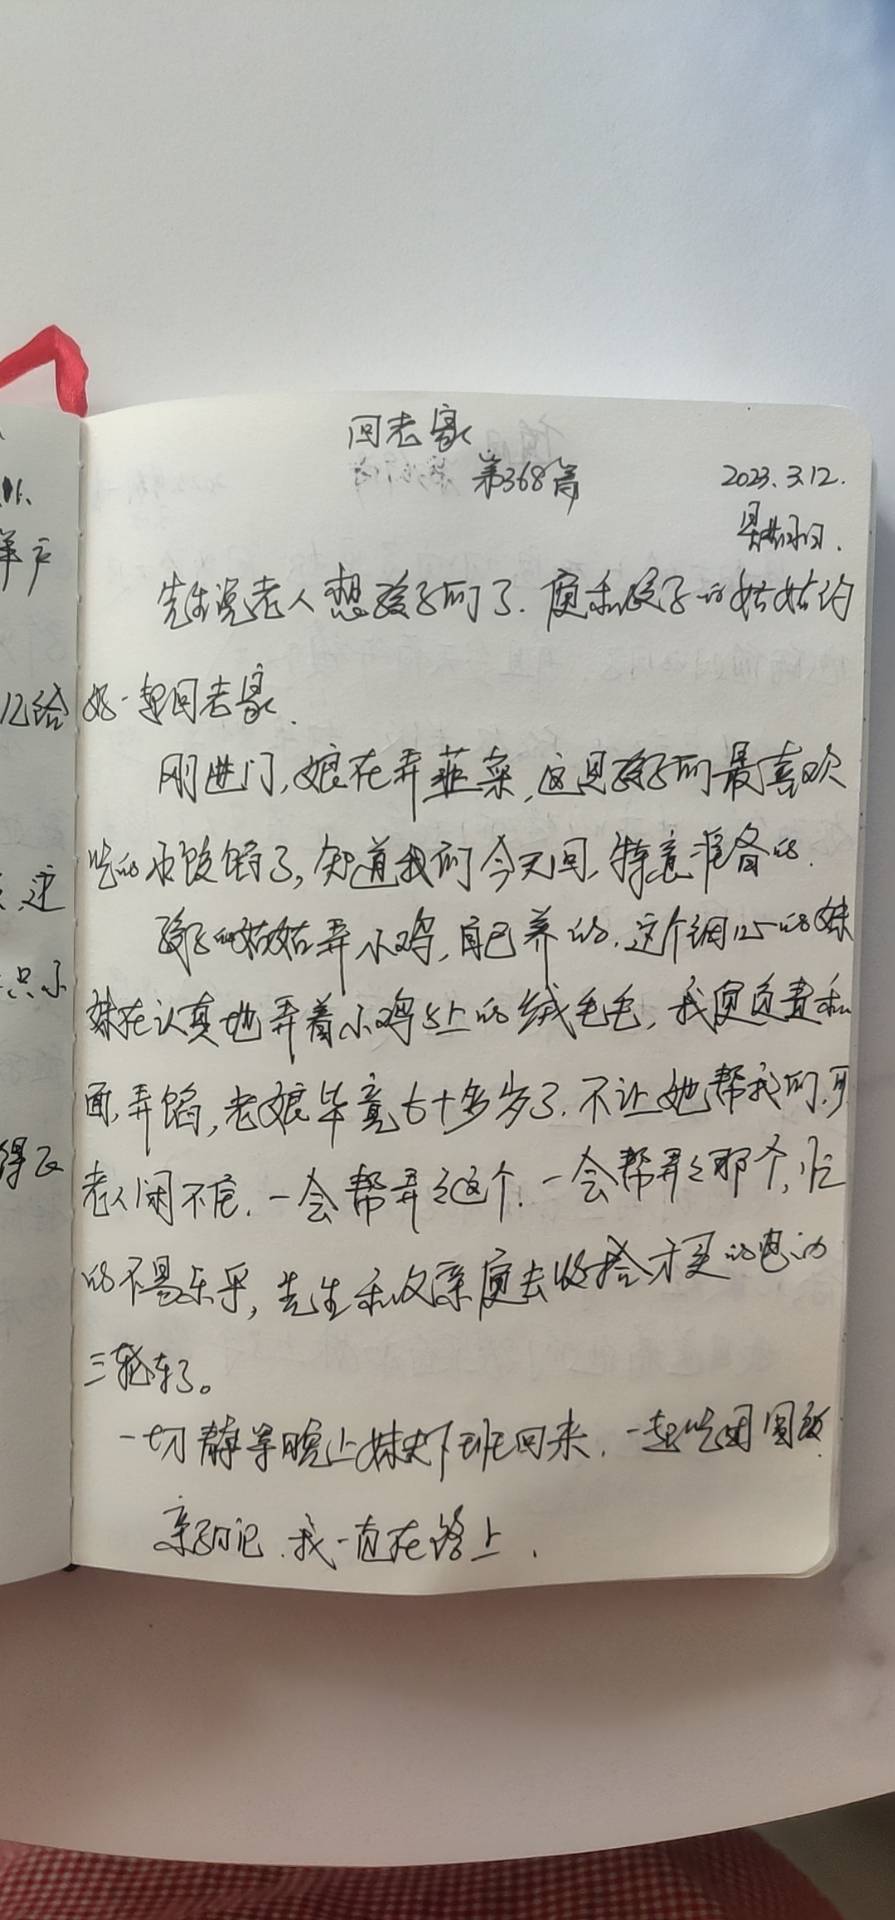 回老家
第368篇 2023.3.12.
星期日.
先生说老人想孩子们了.便和孩子的姑姑约
好一起回老家.
刚进门,娘在弄韭菜,这是孩子们最喜欢
吃的水饺馅了,知道我们今天回,特意准备的.
孩子的姑姑弄小鸡,自己养的.这个细心的妹
妹在认真地弄着小鸡身上的绒毛毛,我便负责和
面,弄馅,老娘毕竟七十多岁了.不让她帮我们,可
老人闲不住.一会帮弄弄这个.一会帮弄弄那个,忙
的不易乐乎,先生和父亲便去收拾才买的电动
三轮车了。
一切静等晚上妹夫下班回来.一起吃团圆饭.
亲子日记.我一直在路上.
1.
户
记给
逆
只小
得及